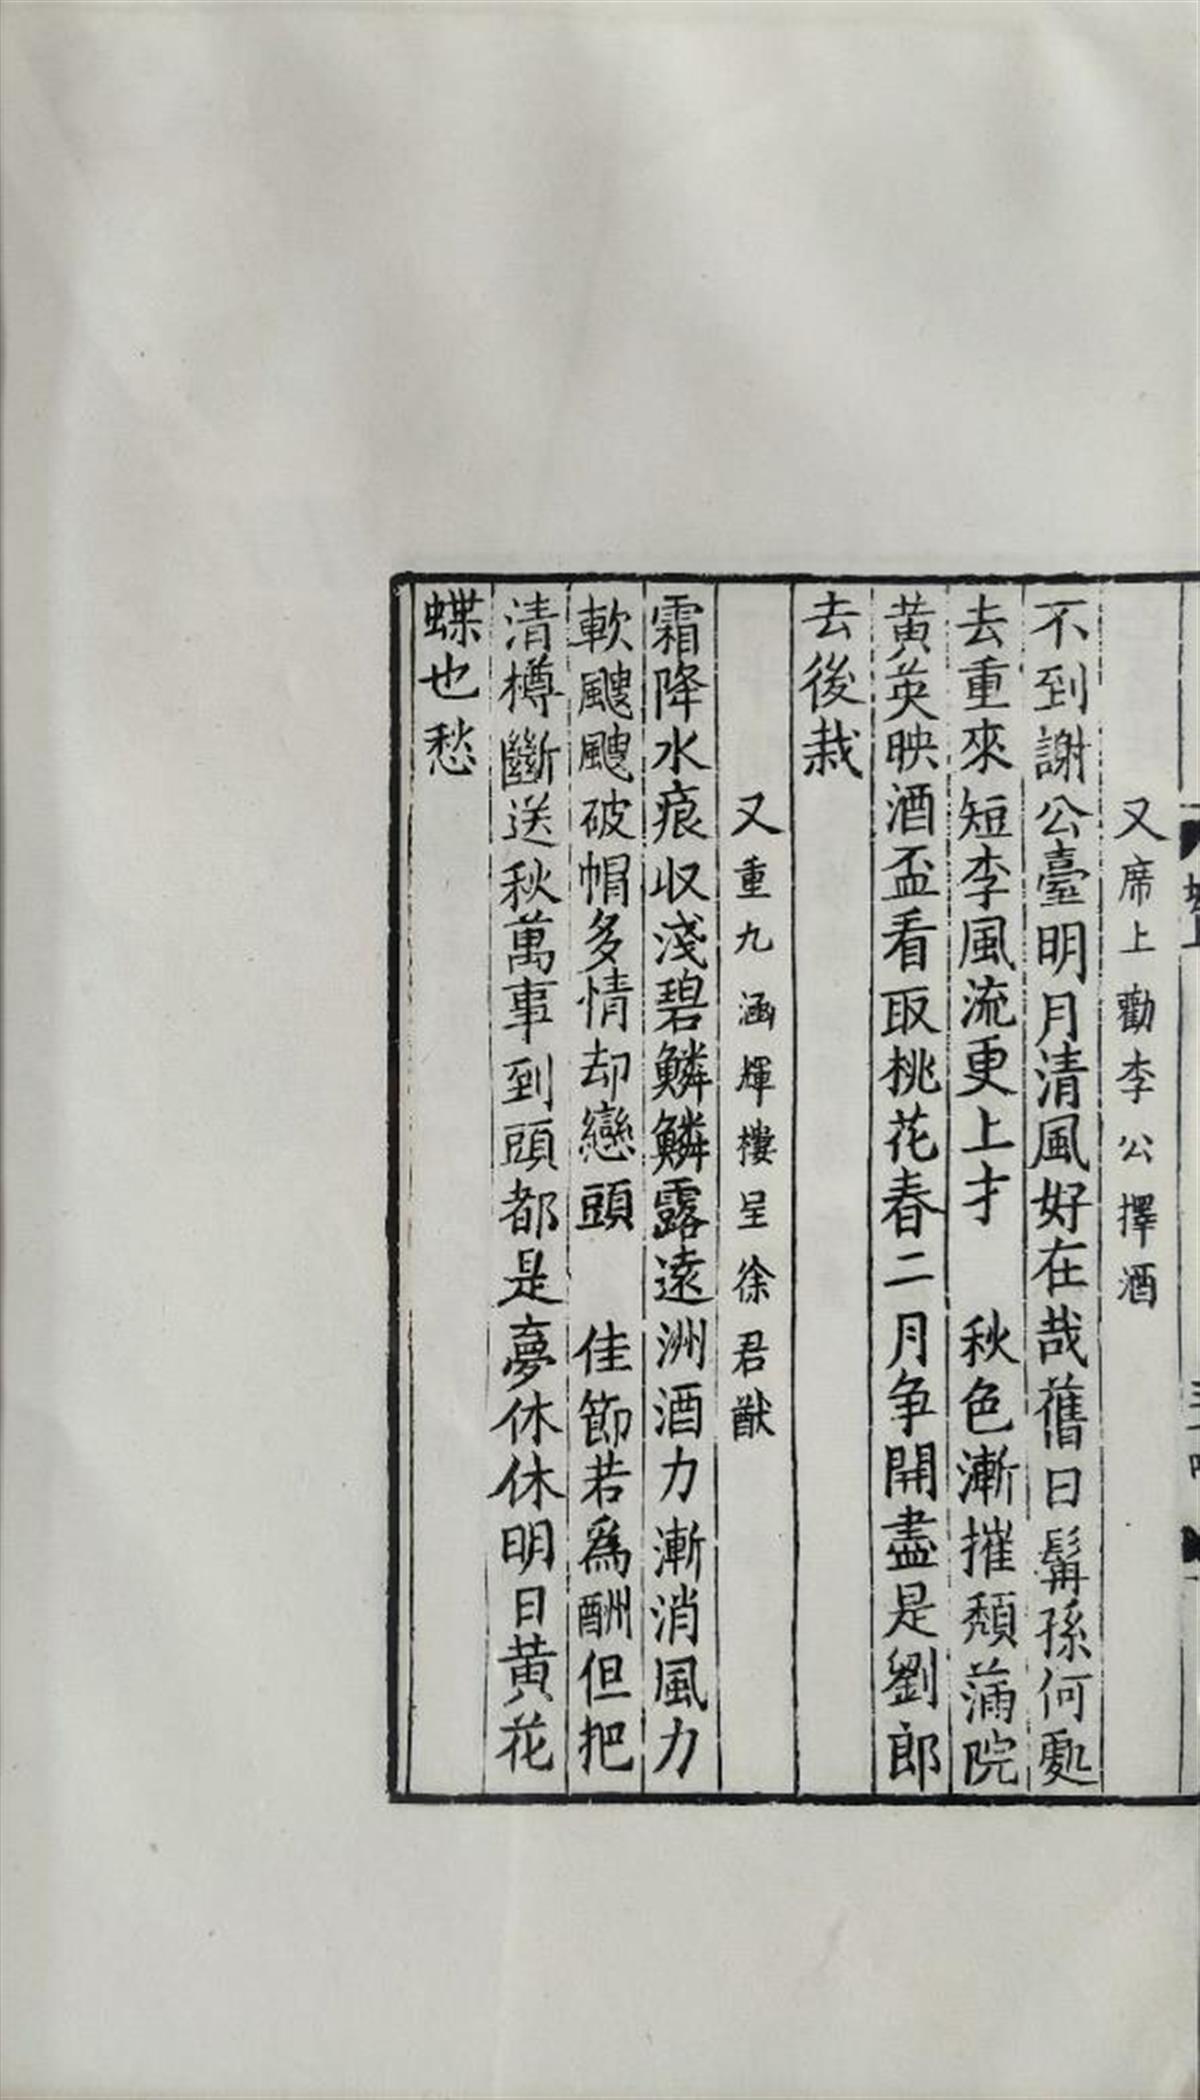 又席上勸李公擇酒
不到謝公臺明月清風好在哉舊日髯孫何處
去重來短李風流更上才　秋色漸摧頹蒲院
黃英映酒盃看取桃花春二月争開盡是劉郎
去後栽
又重九涵輝樓呈徐君猷
霜降水痕收淺碧鱗鱗露遠洲酒力漸消風力
軟颼颼破帽多情却戀頭　佳節若為酬但把
清樽斷送秋萬事到頭都是夢休休明日黃花
蝶也愁